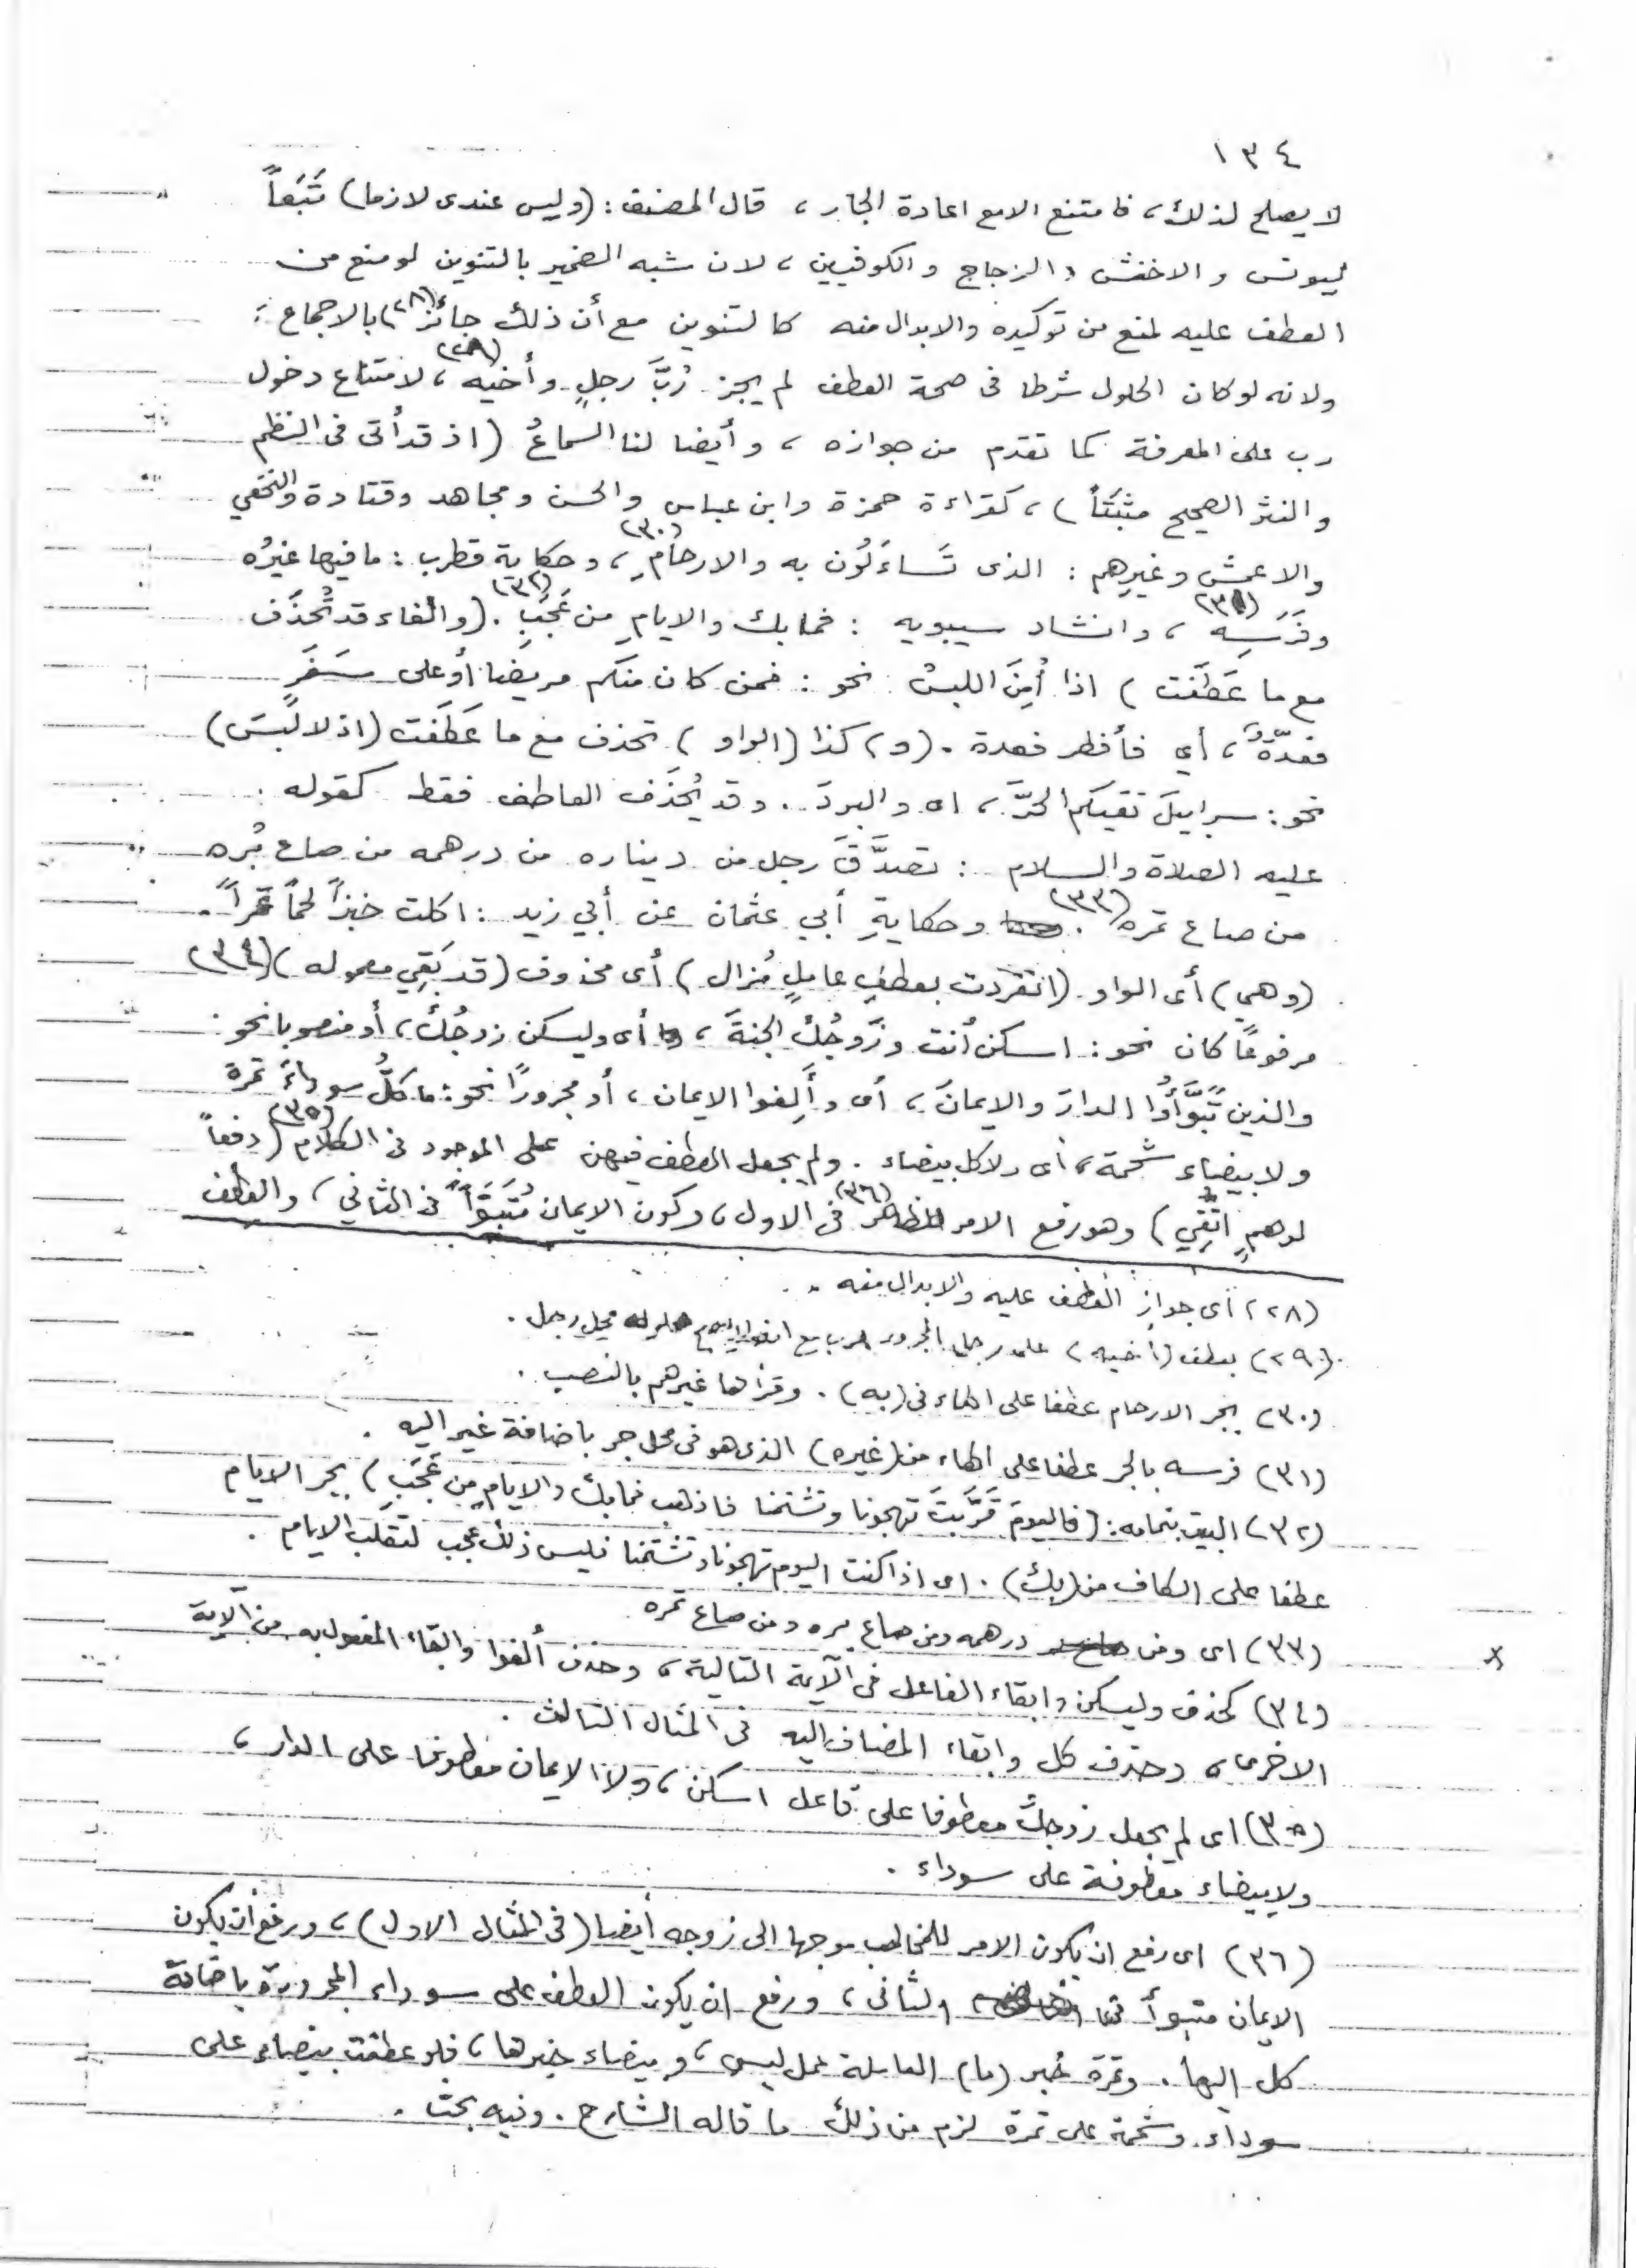 ١٣٤
لا يصلح لذلك، فامتنع الا مع اعادة الجار، قال المصنف: (وليس عندى لازما) تَبَعاً
ليونس والاخفش والزجاج والكوفيين، لان شبه الضمير بالتنوين لو منع من
العطف عليه لمنع من توكيده والابدال منه كالتنوين مع أن ذلك جائز(٢٨) بالاجماع،
ولانه لوكان الحلول شرطا فى صحة العطف لم يجز رُبَّ رجلٍ وأخيه(٢٩)، لامتناع دخول
رب على المعرفة كما تقدم من جوازه، وأيضا لنا السماعُ (اذ قد أتى فى النظم
والنثر الصحيح مثبَتَاً)، كقراءة حمزة وابن عباس والحسن ومجاهد وقتادة والنخعي
والاعمش وغيرِهم: الذى تَساءَلُون به والارحامِ(٣٠)، وحكاية قطرب: ما فيها غيرُه
وفَرَسِه(٣١)، وانشاد سيبويه: فمابك والايامِ من عَجَبِ(٣٢). (والفاء قد تُحذَف
مع ما عَطَفَت) اذا أُمِنَ اللبسُ نحو: فمن كان منكم مريضا أو على سَفَرٍ
فعدّةٌ، أي فأفطر فعدة. (و) كذا (الواو) تحذف مع ما عَطَفَت (اذ لا لَبسَ)
نحو: سرابيلَ تقيكم الحرَّ، اى والبردَ. وقد يُحذَف العاطف فقط كقوله
عليه الصلاة والسلام: تصدَّقَ رجل من ديناره من درهمه من صاع بُره
من صاع تمره(٣٣). وحكايةِ أبي عثمان عن أبي زيد: اكلت خبزاً لحماً تمراً.
(وهي) أى الواو (انفردت بعطفِ عاملٍ مُزال) أى محذوف (قد بَقِي معموله)(٣٤)
مرفوعًا كان نحو: اسكن أنت وزَوجُكَ الجنةَ، أى وليسكن زوجُكَ، أو منصوبا نحو:
والذين تَبَوَّأُوا الدارَ والايمانَ، أى وأَلِفوا الايمان، أو مجرورًا نحو: ما كلُّ سوداءَ تمرة
ولا بيضاء شحمة، أى ولا كل بيضاء. ولم يجعل العطف فيهن على الموجود فى الكلام(٣٥) (دفعاً
لوهمٍ اتُّقِي) وهو رفع الامر الظاهرَ(٣٦) فى الاول، وكون الايمان مُتَبَوَّأً فى الثاني، والعطف
(٢٨) أى جواز العطف عليه والابدال منه.
(٢٩) بعطف (أخيه) على رجل المجرور برب مع حلوله محل رجل.
(٣٠) بجر الارحام عطفا على الهاء فى (به). وقرأها غيرهم بالنصب.
(٣١) فرسه بالجر عطفا على الهاء من (غيره) الذى هو فى محل جر باضافة غير اليه.
(٣٢) البيت بتمامه: (فاليومَ قَرَّبتَ تهجونا وتشتمنا فاذهب فمابك والايامِ من عَجَبِ) بجر الايام
عطفا على الكاف من (بك). اى اذا كنت اليوم تهجونا وتشتمنا فليس ذلك عجب لتقلب الايام.
(٣٣) اى ومن درهمه ومن صاع بره ومن صاع تمره
(٣٤) كحذف وليسكن وابقاء الفاعل فى الآية التالية، وحذف ألفوا وابقاء المفعول به من الآية
الاخرى، وحذف كل وابقاء المضاف اليه فى المثال الثالث.
(٣٥) اى لم يجعل زوجك معطوفا على فاعل اسكن، ولا الايمان معطوفا على الدار،
ولا بيضاء معطوفة على سوداء.
(٣٦) اى رفع ان يكون الامر للمخاطب موجها الى زوجه أيضا (فى المثال الاول)، ورفع أن يكون
الايمان متبوأ فى الثانى، ورفع ان يكون العطف على سوداء المجرورة باضافة
كل اليها. وتمرة خبر (ما) العاملة عمل ليس، وبيضاء خبرها، فلو عطفت بيضاء على
سوداء وشحمة على تمرة لزم من ذلك ما قاله الشارح. وفيه بحث.